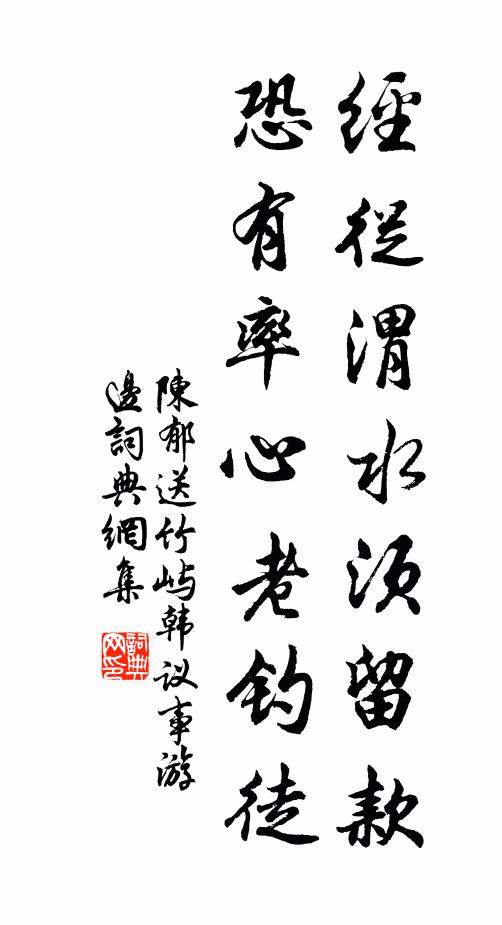 經從渭水須留款
恐有率心老釣徒
陳郁送竹屿韩议事游
邊詞典網集
詞典网印